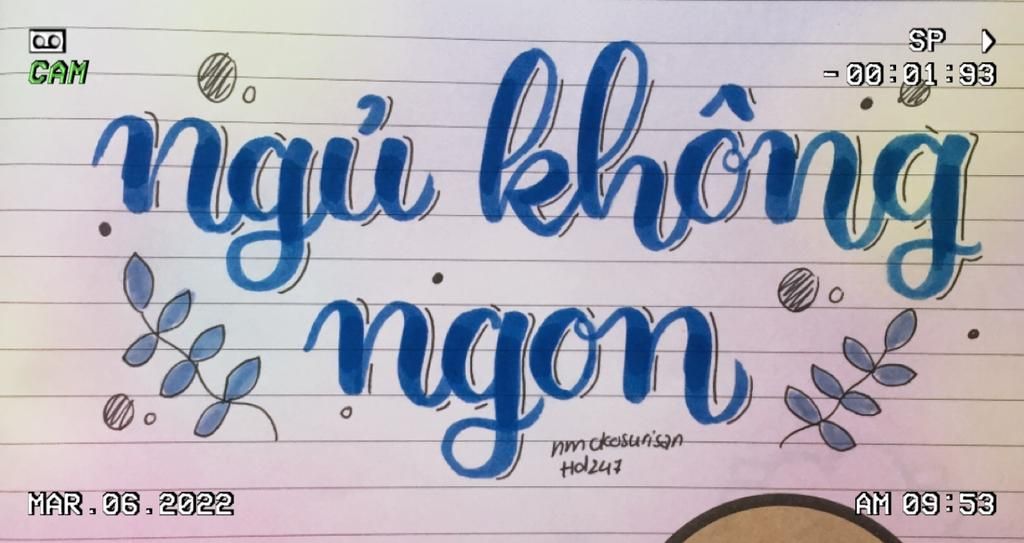 SP
CAM
-00:01:93
ngủ không
ngon
Hol247
MAR.06.2022
AM 09:53